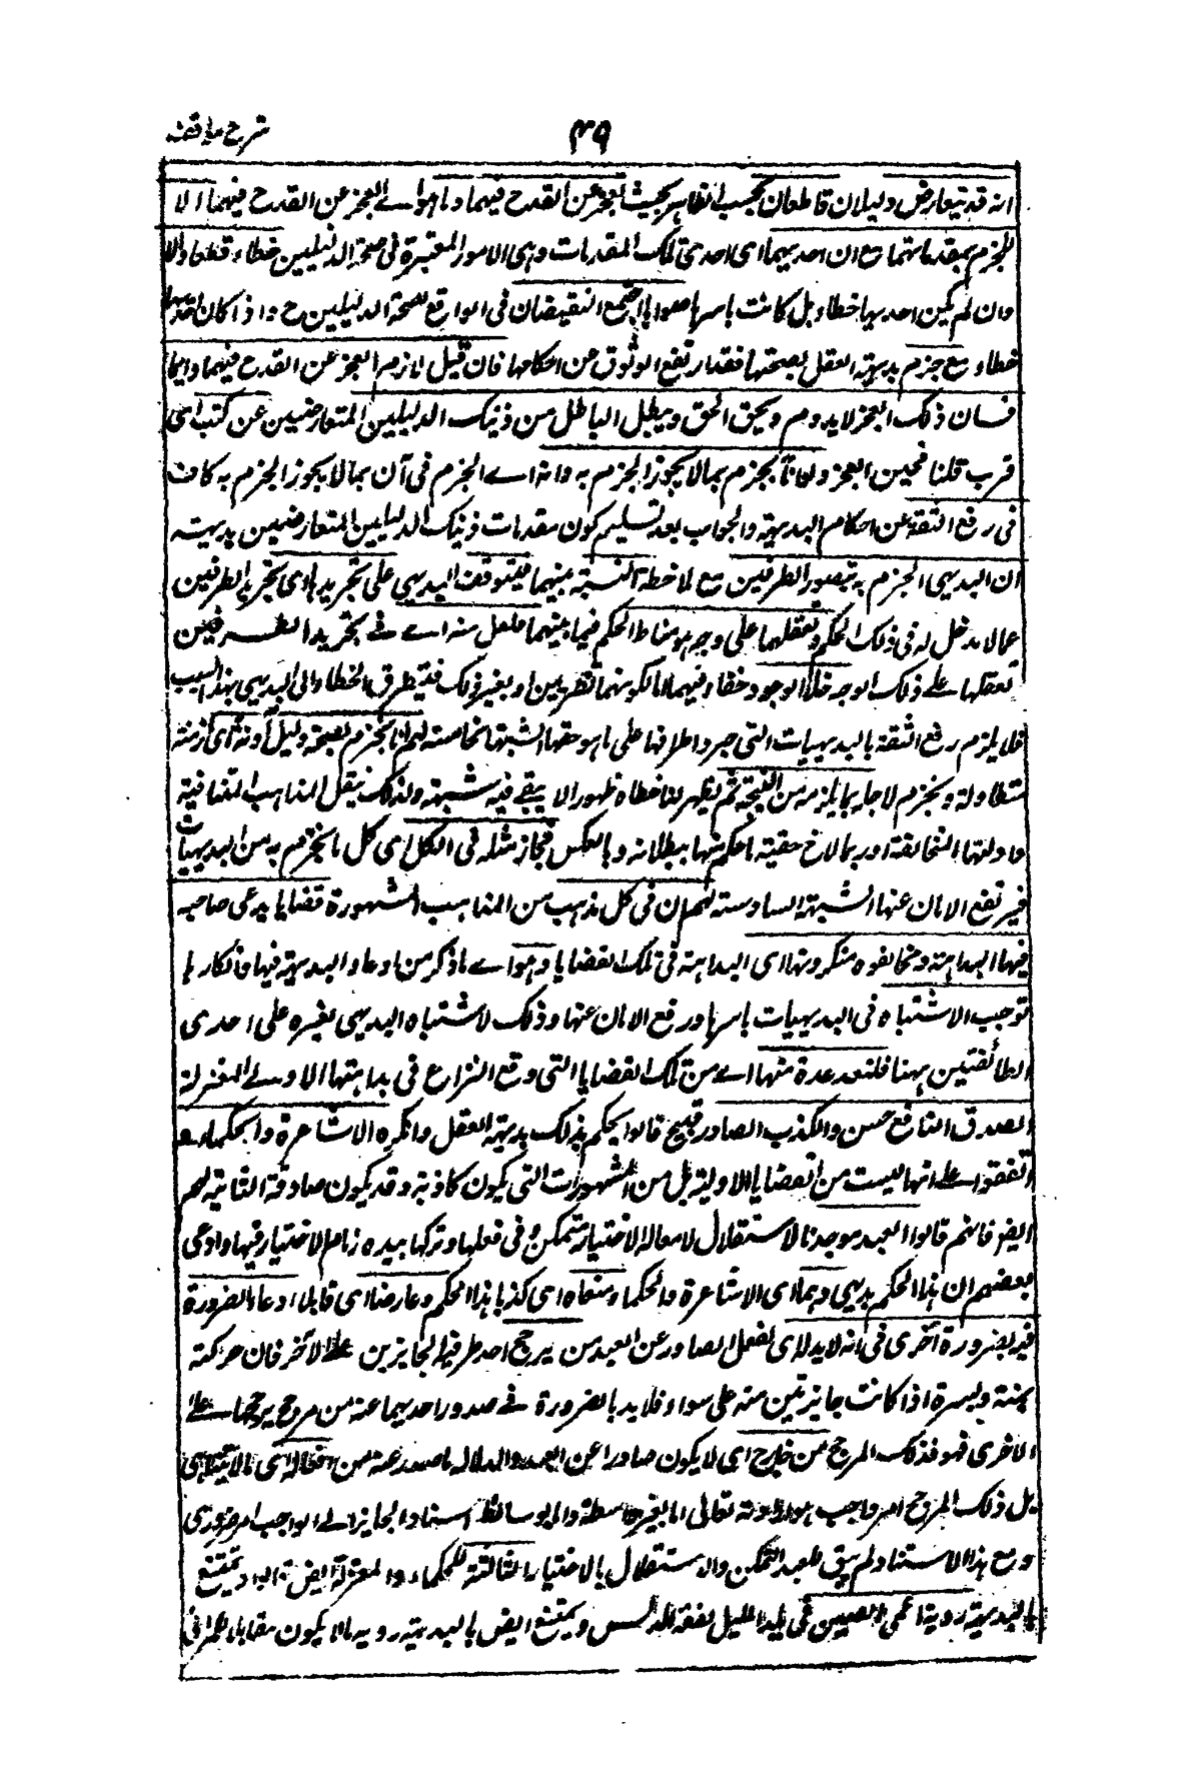 شرح مواقف
٤٩
انه قد يتعارض دليلان قاطعان بحسب الظاهر بحيث نعجز عن القدح فيهما وما هو اے العجز عن القدح فيهما الا
للجزم بمقدماتهما مع ان احديهما اى احدى تلك المقدمات وهى الامور المعتبرة فى صحة الدليلين خطاء قطعا والا
وان لم يكن احديها خطاء بل كانت باسرها صوابا اجتمع النقيضان فى الواقع لصحة الدليلين ح واذا كان احديها
خطاء مع جزم بديهة العقل بصحتها فقد ارتفع الوثوق عن احكامها فان قيل لا نزم العجز عن القدح فيهما دايما
فان ذلك العجز لا يدوم ويحق الحق ويبطل الباطل من ذينك الدليلين المتعارضين عن كثب اى
قرب قلنا فحين العجز ولو آنا نجزم بما لا يجوز الجزم به وانه اے الجزم فى آن بما لا يجوز الجزم به كاف
فى رفع الثقة عن احكام البديهة والجواب بعد تسليم كون مقدمات ذينك الدليلين المتعارضين بديهية
ان البديهى الجزم به بتصور الطرفين مع ملاحظة النسبة بينهما فيتوقف البديهى على تجريدهما اى تجريد الطرفين
عما لا مدخل له فى ذلك الحكم وتعقلهما على وجه هو مناط الحكم فيما بينهما فلعل منه اے فى تجريد الطرفين
تعقلهما على ذلك الوجه خللا لوجود خفاء فيهما اما لكونهما نظريين او بغير ذلك فيتطرق الخطاء الى البديهى بهذا السبب
فلا يلزم رفع الثقة بالبديهيات التى جرد اطرافها على ما هو حقها الشبهة الخامسة لهم انا نجزم بصحة دليل آونة اى ازمنة
متطاولة ونجزم لاجله بما يلزمه من النتيجة ثم يظهر لنا خطاه ظهورا لا يبقى فيه شبهة ولذلك ننقل المذاهب المتنافية
وادلتها المتخالفة وربما لاح حقية ما حكم منها ببطلانه وبالعكس فجاز مثله فى الكل اى كل ما نجزم به من البديهيات
فيرتفع الامان عنها الشبهة السادسة لهم ان فى كل مذهب من المذاهب المشهورة قضايا يدعى صاحبه
فيها البداهة ومخالفوه منكرونها اى البداهة فى تلك القضايا وهو اے ما ذكر من ادعاء البديهة فيها وانكارها
توجب الاشتباه فى البديهيات باسرها ورفع الامان عنها وذلك لاشتباه البديهى بغيره على احدى
الطائفتين بهنا فلنعد عدة منها اے من تلك القضايا التى وقع النزاع فى بداهتها الاولى للمعتزلة
الصدق النافع حسن والكذب الضار قبيح قالوا يحكم بذلك بديهة العقل وانكره الاشاعرة والحكماء
اتفقوا على انها ليست من القضايا الاولية بل من المشهورات التى يكون كاذبة وقد يكون صادقة الثانية لهم
ايض فانهم قالوا العبد موجد بالاستقلال لافعاله الاختيارية متمكن فى فعلها وتركها بيده زمام الاختيار فيها وادعى
بعضهم ان هذا الحكم بديهى وهما اى الاشاعرة والحكماء منعاه اى كذبا هذا الحكم وعارضا اى قابلا ادعاء الضرورة
فيه بضرورة اخرى فى انه لا بد لاى لفعل الصادر عن العبد من يرجح احد طرفيه الجايزين على الآخر فان حركته
يمنة ويسرة اذا كانت جايزتين منه على سواء فلا بد بالضرورة فى صدور احديهما عنه من مرجح يرجحها على
الاخرى فهو فذلك المرجح من خارج اى لا يكون صادرا عن العبد والا لما صدر عنه من افعاله اى ما لا يتناهى
بل ذلك المرجح امر واجب هو ارادته تعالى اما بغير واسطة واما بوسائط استناد الجايز الى الواجب امر ضرورى
ومع هذا الاستناد لم يبق للعبد التمكن والاستقلال بالاختيار الثالثة للحكماء والمعتزلة ايض يمتنع
بالبديهة روية اعمى الصين فى الليل بقعة اندلس ويمتنع ايض بالبديهية روية ما لا يكون مقابلا للرائى